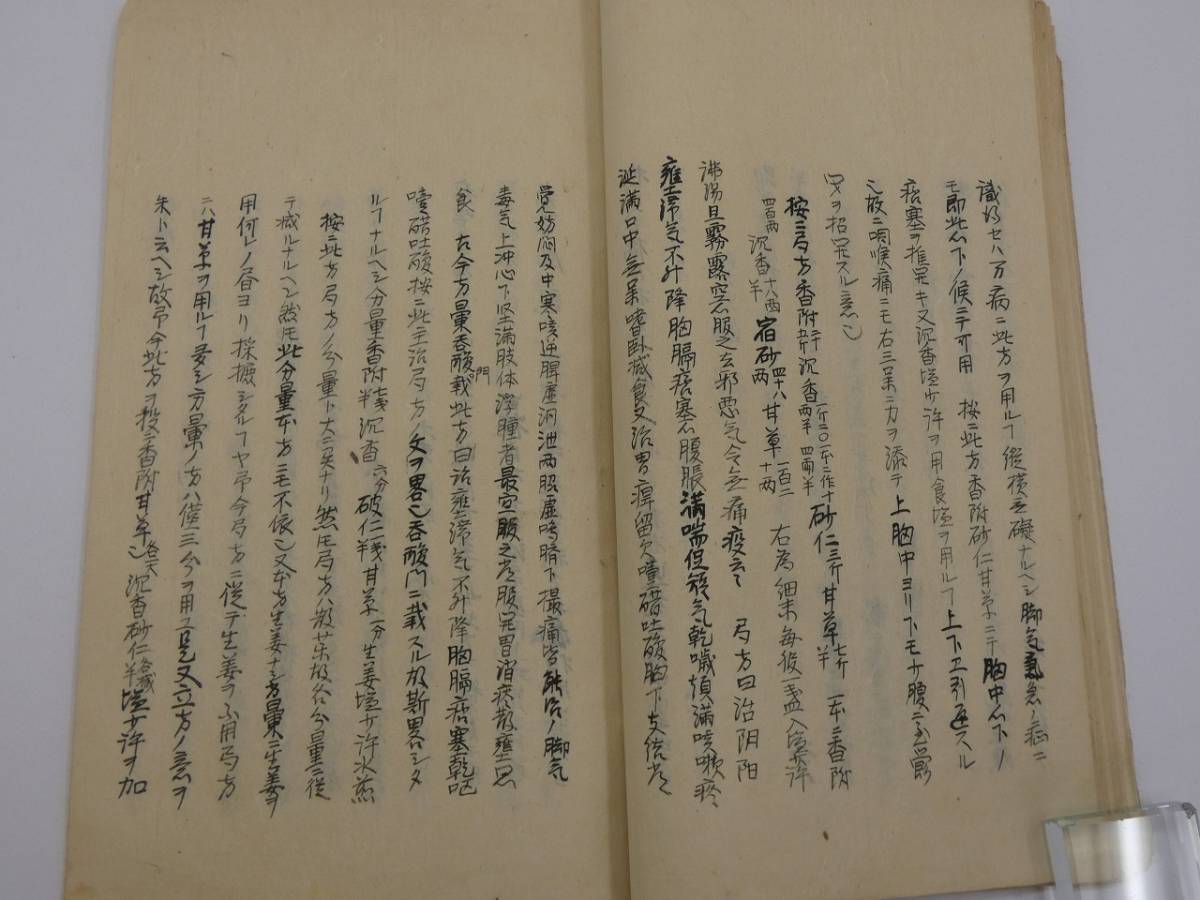 識好セハ万病ニ此方ヲ用ルヿ縦横無礙ナルヘシ脚気氣急ノ症ニ
モ即此心下ノ候ニテ可用 按ニ此方香附砂仁甘草ニテ胸中心下ノ
痞塞ヲ推開キ又沉香塩少許ヲ用食塩ヲ用ルヿ上下エ引返スル
心故ニ咽喉痛ニモ右三味ニ力ヲ添テ上胸中ヨリ下モ少腹ニ
又ヲ招開スル意也
按ニ局方香附 沉香 砂仁三斤甘草七斤半 一本ニ香附
四百両 沉香十八両半 宿砂四十八両 甘草一百二十両 右為細末毎後一盞入塩少許
沸湯旦霧露空心服之云邪悪気令無痛疫云々 局方曰治阴阳
壅滞気不升降胸膈痞塞心腹脹満喘促短気乾噦煩満咳嗽痰
涎満口中無味嗜卧減食又治胃痺留欠噎醋吐酸胸下支结常
覚妨悶及中寒咳逆脾虚洞泄両脇虚鳴臍下撮痛皆能治ノ脚気
毒気上冲心下坚満肢体浮腫者最宜一服之常服開胃消痰散壅思
食 古今方彙呑酸門載此方曰治壅滞气不升降胸膈痞塞乾呕
噎醋吐酸按ニ此主治局方ノ文ヲ畧也呑酸門ニ載スル故斯畧シタ
ルヿナルヘシ分量香附一戔半沉香六分 破仁一戔半甘草一分生姜塩少许水煎
按ニ此方局方ノ分量ト大ニ异ナリ然𪜈局方ハ散茶故谷分量ニ従
テ減ルナルヘシ然𪜈此分量本方ニモ不依也又本方生姜ナシ方彙ニ生姜ヲ
用何レノ昼ヨリ採擴シタルヿヤ吊今局方ニ從テ生姜ヲ不用局方
ニハ甘草ヲ用ルヿ多シ方彙ノ方ハ僅三分ヲ用ユ是又立方ノ意ヲ
失ト云ヘシ故吊今此方ヲ投ニ香附甘草 沉香砂仁 塩少许ヲ加